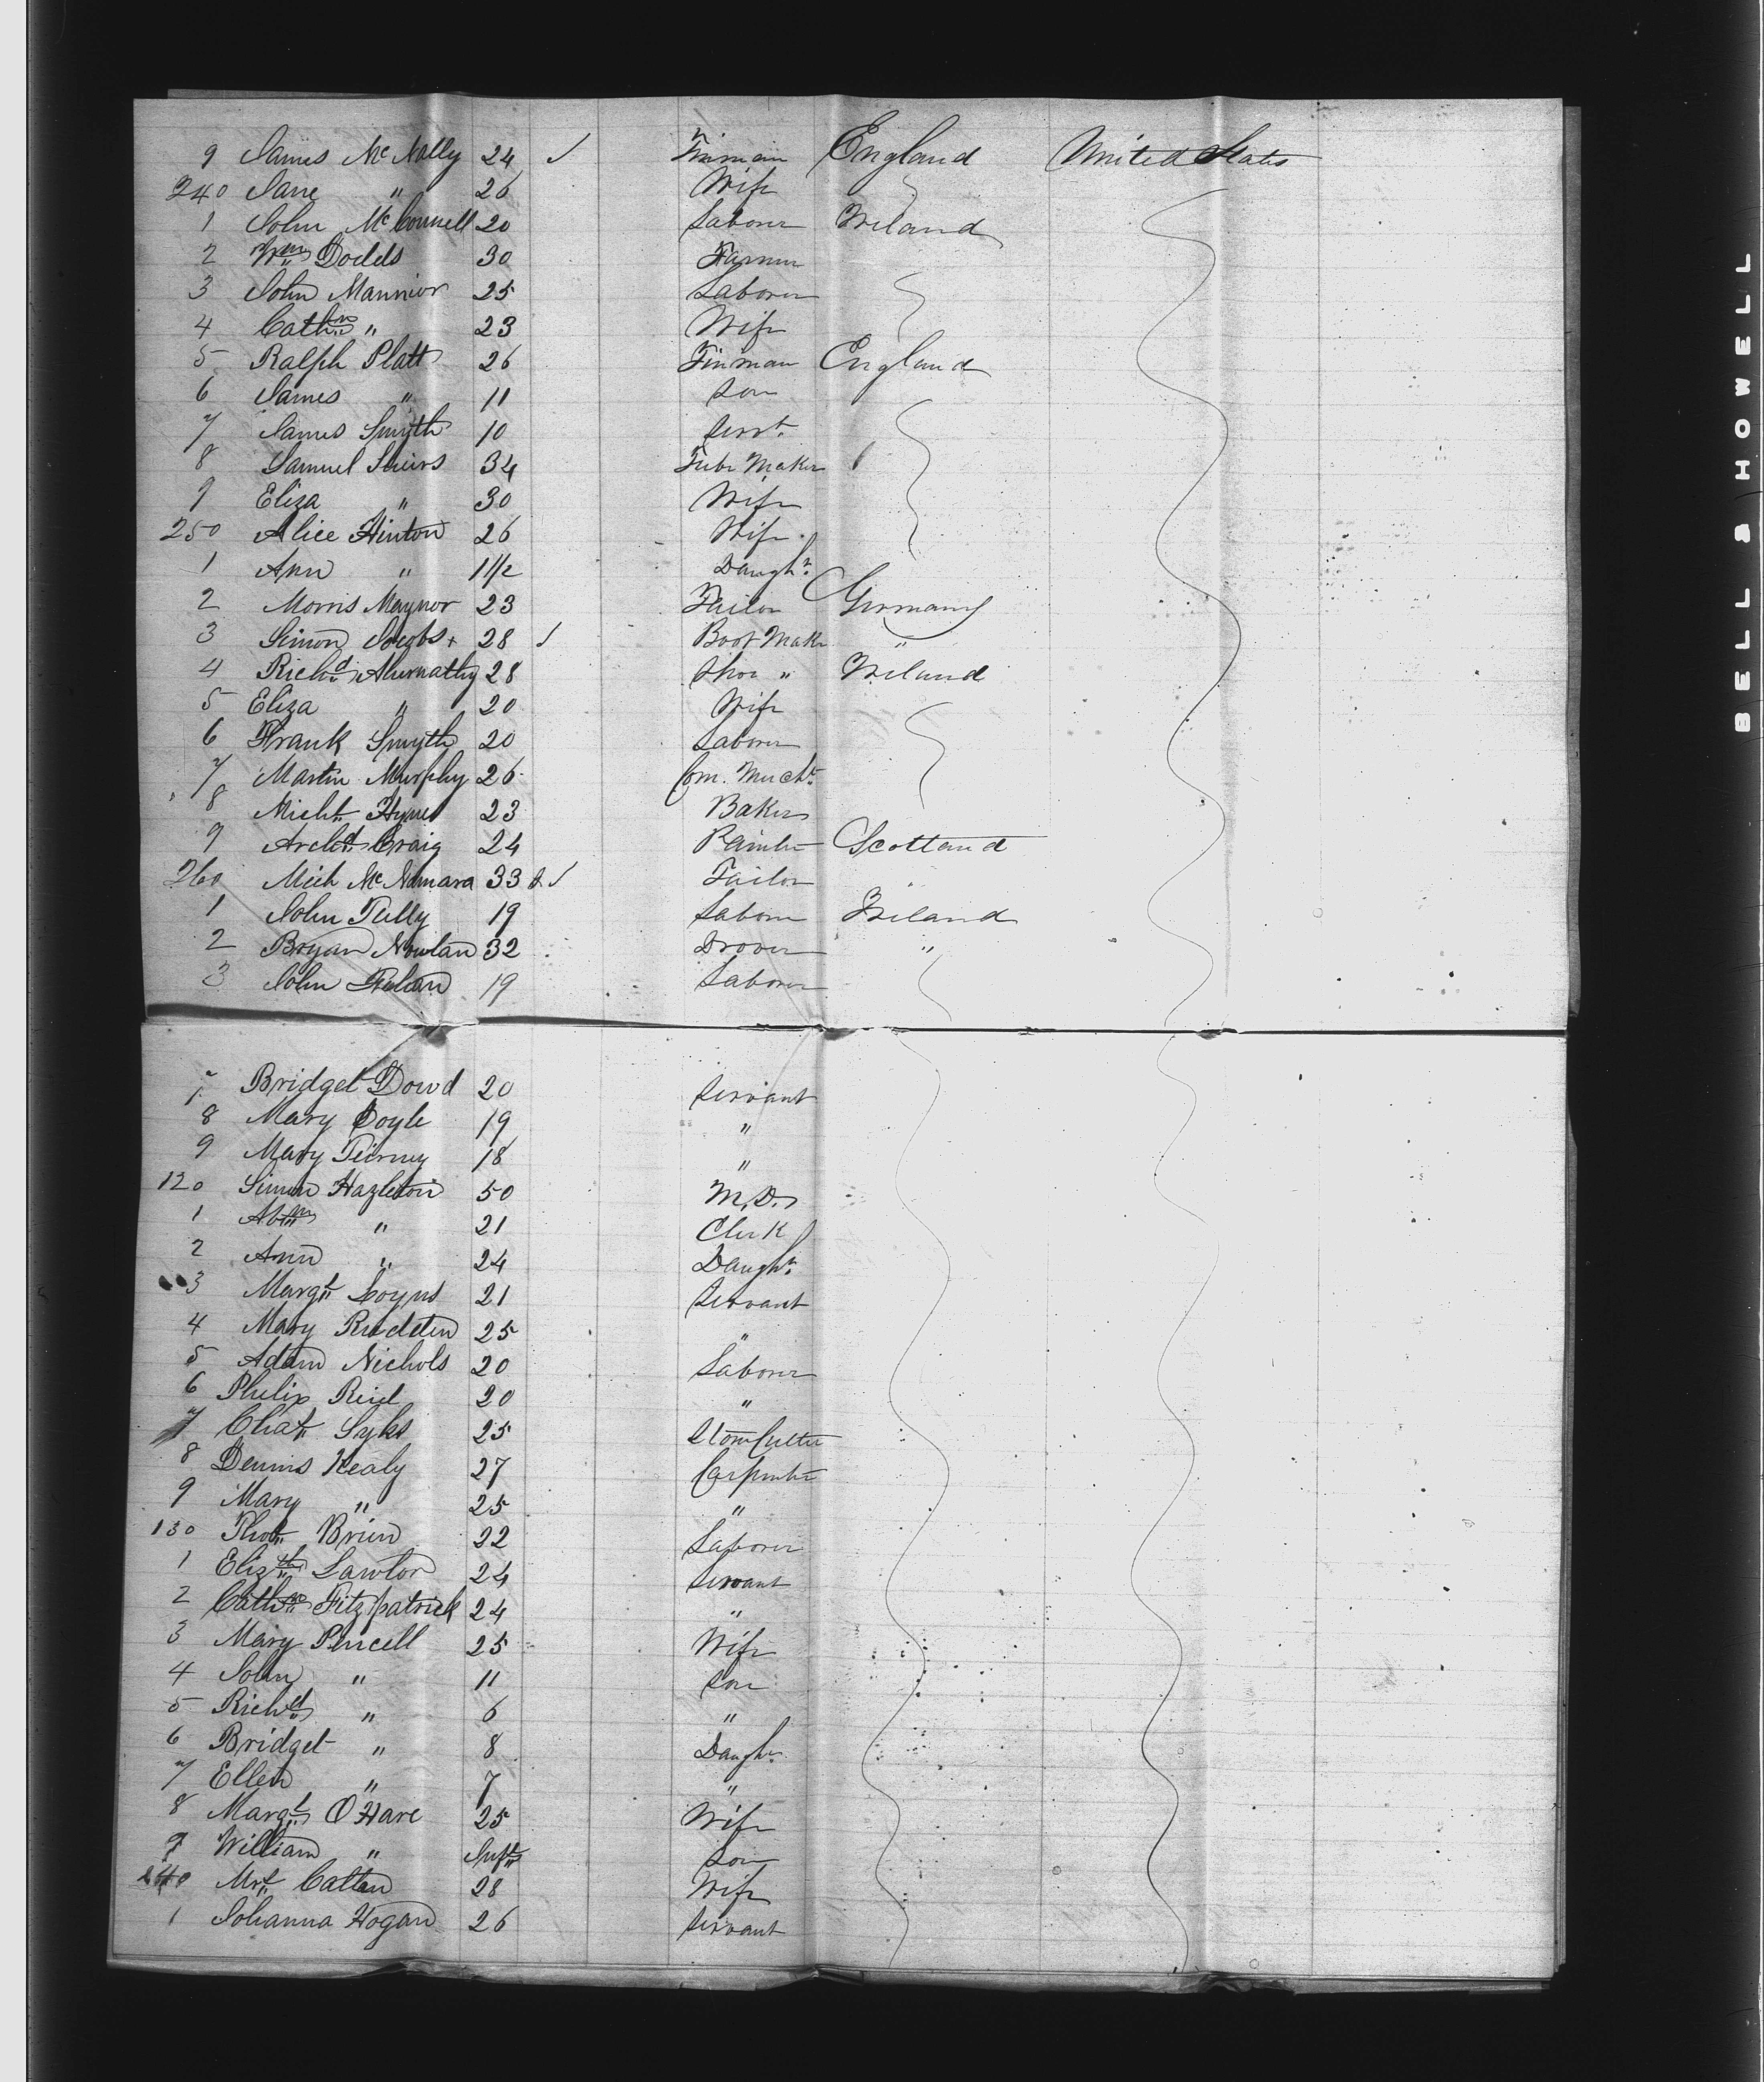 9 James McNally 24 ✓ Tinman England United States
240 Jane " 26 Wife
1 John McConnell 20 Laborer Ireland
2 Wm Dodds 30 Farmer
3 John Mannior 25 Laborer
4 Cathne " 23 Wife
5 Ralph Platt 26 Tinman England
6 James " 11 Son
7 James Smyth 10 Servt.
8 Samuel 34 Tube Maker
9 Eliza " 30 Wife
250 Alice Hinton 26 Wife
1 Ann " 1 1/2 Daughr.
2 Morris Maynor 23 Tailor Germany
3 Simon Jacobs + 28 ✓ Boot Maker "
4 Richd Abernathy 28 Shoe " Ireland
5 Eliza " 20 Wife
6 Frank Smyth 20 Laborer
7 Martin Murphy 26 Com. Mercht.
8 Michl Hynes 23 Baker
9 Archd Craig 24 Painter Scotland
260 Mich McNamara 33 ✓ Tailor
1 John Tully 19 Laborer Ireland
2 Bryan Nowlan 32 Drover "
3 John 19 Laborer
7 Bridget Dowd 20 Servant
8 Mary Doyle 19 "
9 Mary Tierney 18 "
120 Simon Hazleton 50 M.D.
1 Abm " 21 Clerk
2 Ann " 24 Daughr.
3 Margt Coyns 21 Servant
4 Mary Rudden 25 "
5 Adam Nichols 20 Laborer
6 Philip Reid 20 "
7 Chas Syks 25 Stone Cutter
8 Dennis Healy 27 Carpenter
9 Mary " 25 "
130 Thos Brien 22 Laborer
1 Elizth Lawlor 24 Servant
2 Cathne Fitzpatrick 24 "
3 Mary Purcell 25 Wife
4 John " 11 Son
5 Richd " 6 "
6 Bridget " 8 Daughr.
7 Ellen " 7 "
8 Margt O'Hare 25 Wife
9 William " Inft Son
Mrs Callan 28 Wife
1 Johanna Hogan 26 Servant
BELL & HOWELL